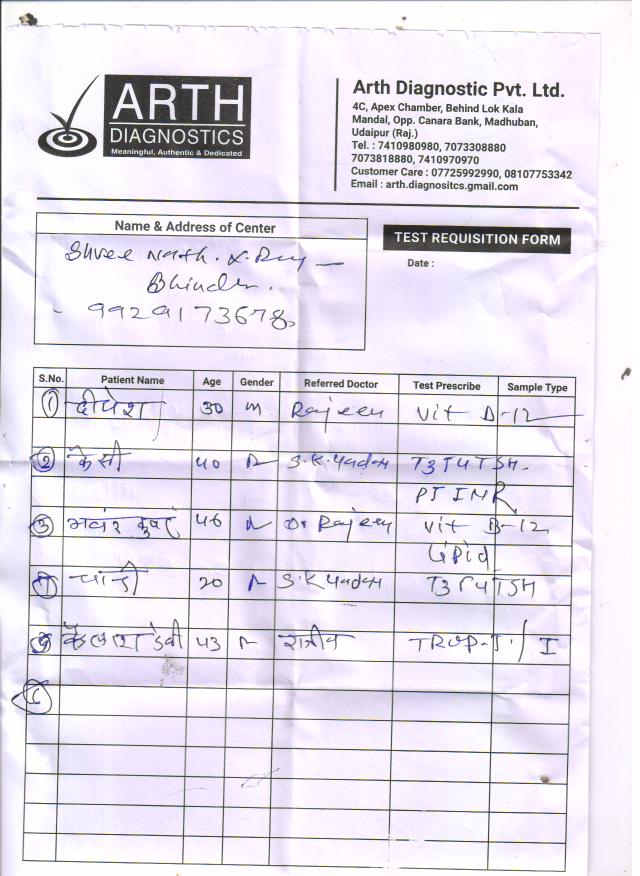 ARTH
DIAGNOSTICS
Meaningful, Authentic & Dedicated
Arth Diagnostic Pvt. Ltd.
4C, Apex Chamber, Behind Lok Kala
Mandal, Opp. Canara Bank, Madhuban,
Udaipur (Raj.)
Tel. : 7410980980, 7073308880
7073818880, 7410970970
Customer Care : 07725992990, 08107753342
Email : arth.diagnositcs.gmail.com
Name & Address of Center
Shree Nath. X-Ray
Bhinder.
9929173678
TEST REQUISITION FORM
Date :
S.No. Patient Name Age Gender Referred Doctor Test Prescribe Sample Type
1 दीपेश 30 m Rajeev Vit B-12
2 केसी 40 S.K. Yadav T3 T4 TSH.
PT INR
3 भवंर कुवंर 46 Dr Rajeev Vit B-12
Lipid
4 20 S.K Yadav T3 T4 TSH
5 कैलाश देवी 43 राजीव TROP-I / I
6